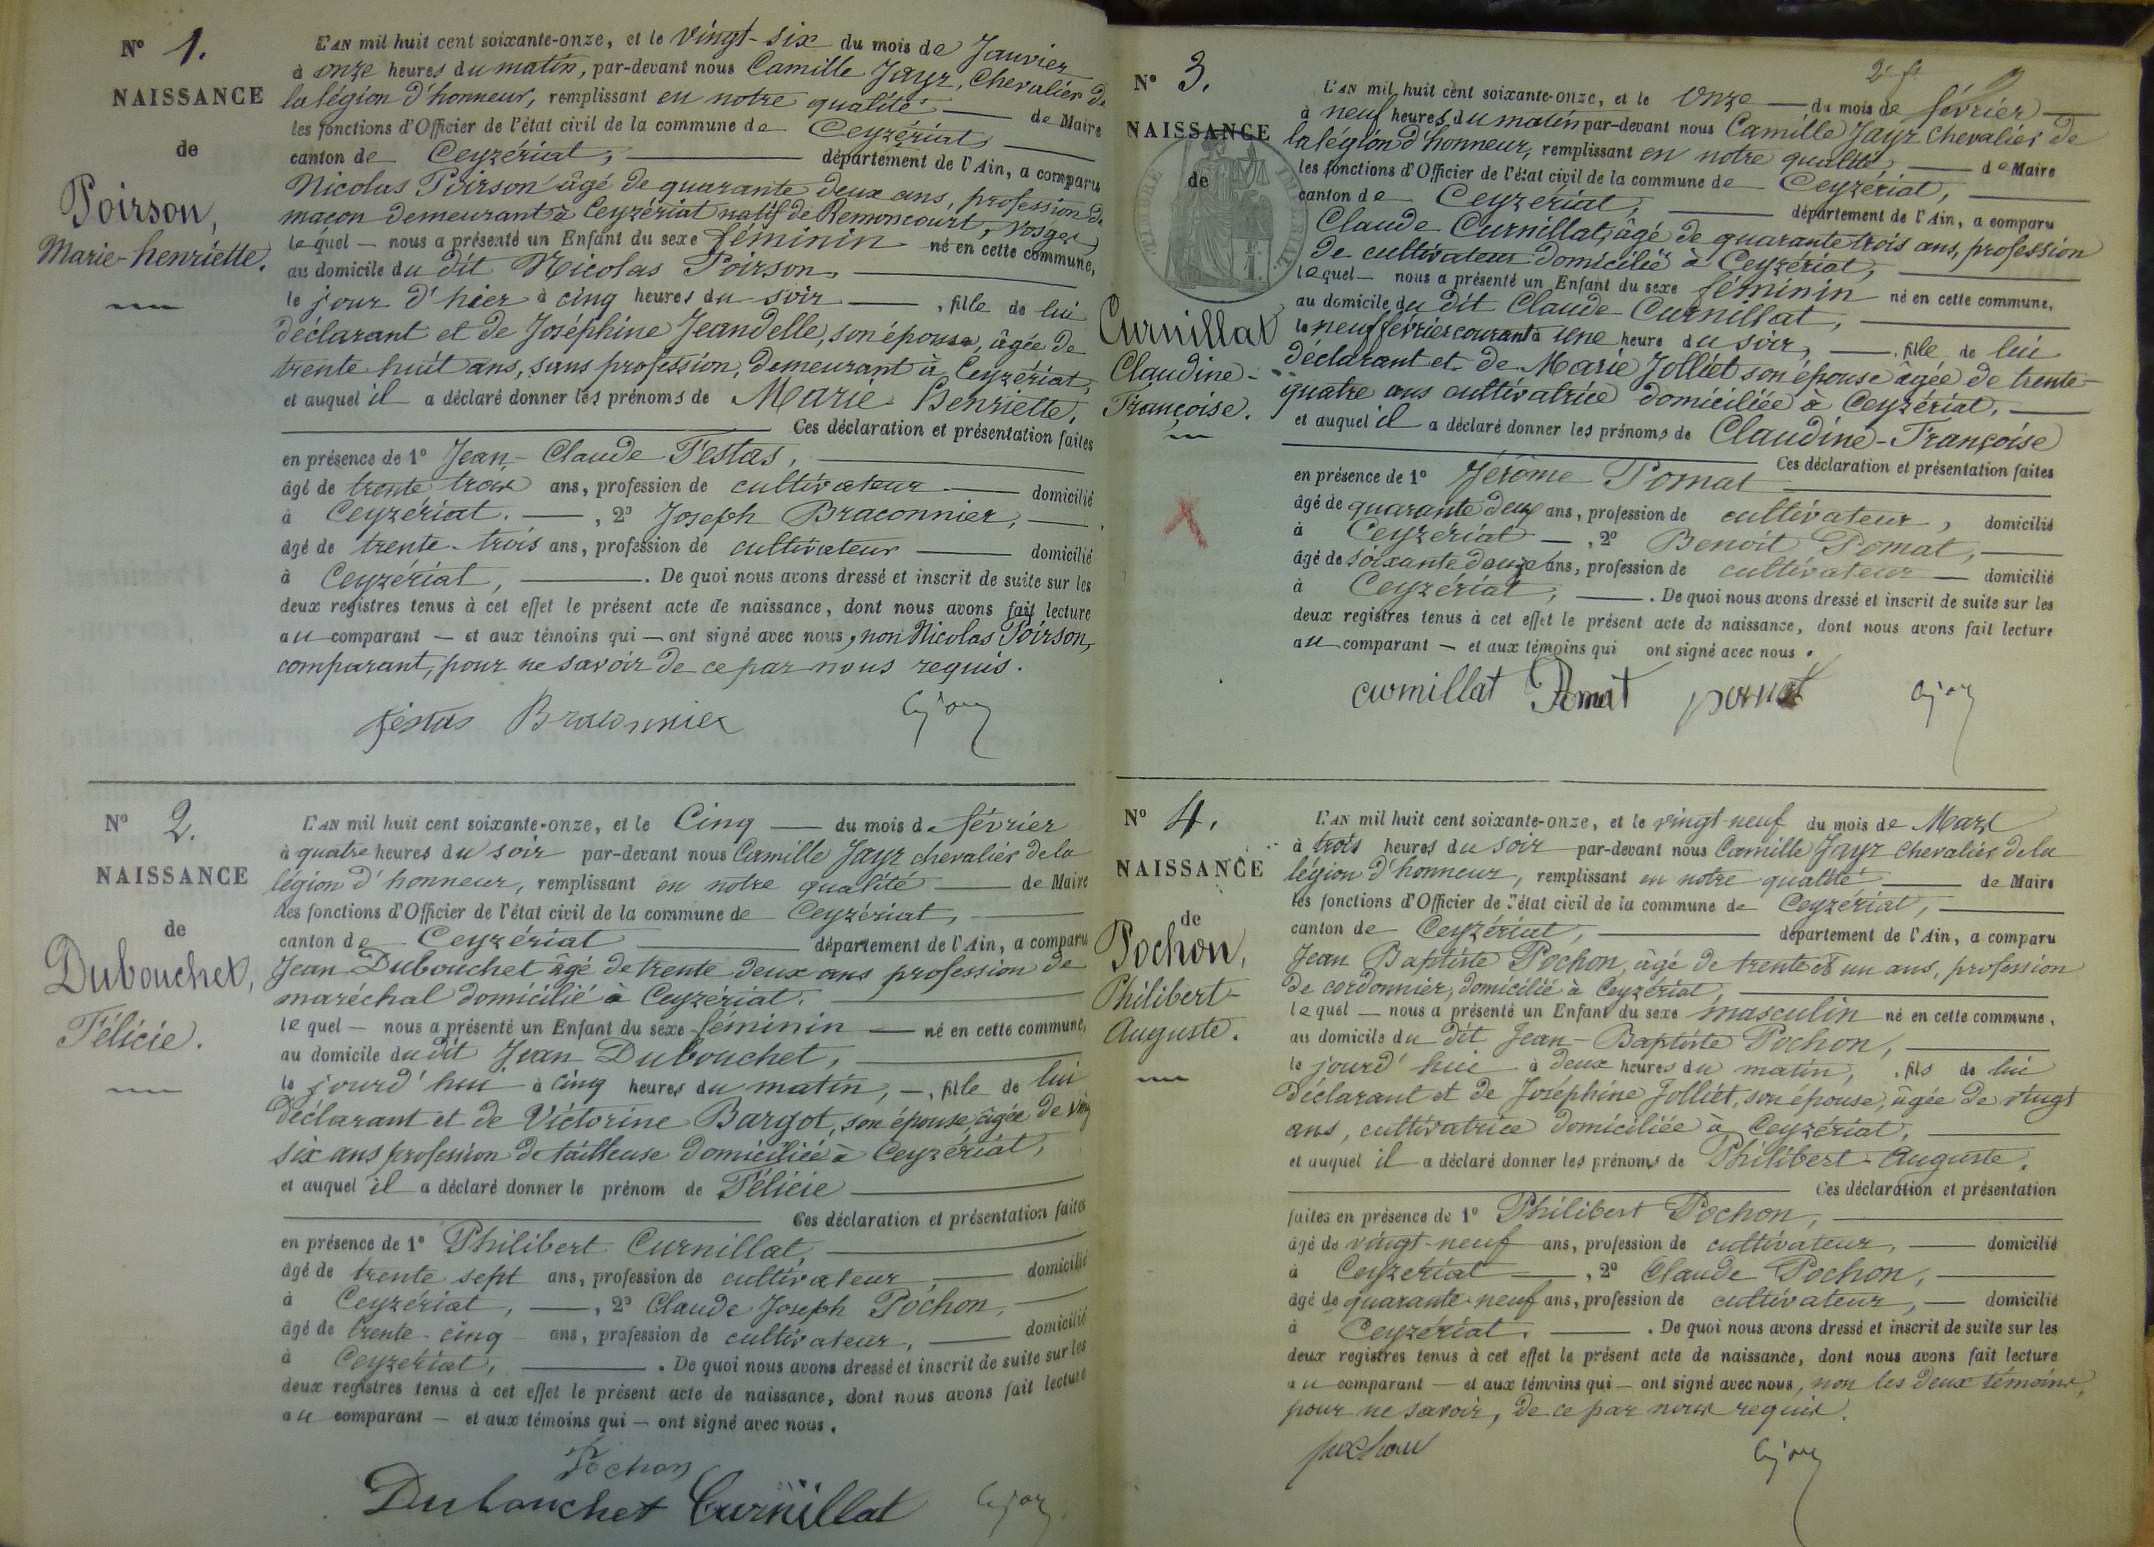 N° 1.
NAISSANCE
de
Poirson,
Marie-henriette.
L'AN mil huit cent soixante-onze, et le vingt-six du mois de Janvier
à onze heures du matin, par-devant nous Camille Jayr, Chevalier de
la légion d'honneur, remplissant en notre qualité de Maire
les fonctions d'Officier de l'état civil de la commune de Ceyzériat,
canton de Ceyzériat, département de l'Ain, a comparu
Nicolas Poirson âgé de quarante deux ans, profession de
maçon demeurant à Ceyzériat natif de Remoncourt, Vosges
lequel nous a présenté un Enfant du sexe féminin né en cette commune,
au domicile du dit Nicolas Poirson,
le jour d'hier à cinq heures du soir, fille de lui
déclarant et de Joséphine Jeandelle, son épouse, âgée de
trente huit ans, sans profession, demeurant à Ceyzériat,
et auquel il a déclaré donner les prénoms de Marie Henriette,
Ces déclaration et présentation faites
en présence de 1° Jean-Claude Festas,
âgé de trente trois ans, profession de cultivateur domicilié
à Ceyzériat. , 2° Joseph Braconnier,
âgé de trente-trois ans, profession de cultivateur domicilié
à Ceyzériat, . De quoi nous avons dressé et inscrit de suite sur les
deux registres tenus à cet effet le présent acte de naissance, dont nous avons fait lecture
au comparant et aux témoins qui ont signé avec nous, non Nicolas Poirson,
comparant, pour ne savoir de ce par nous requis.
festas Braconnier
N° 2.
NAISSANCE
de
Dubouchet,
Félicie.
L'AN mil huit cent soixante-onze, et le Cinq du mois de février
à quatre heures du soir par-devant nous Camille Jayr chevalier de la
légion d'honneur, remplissant en notre qualité de Maire
les fonctions d'Officier de l'état civil de la commune de Ceyzériat,
canton de Ceyzériat département de l'Ain, a comparu
Jean Dubouchet âgé de trente deux ans profession de
maréchal domicilié à Ceyzériat.
lequel nous a présenté un Enfant du sexe féminin né en cette commune,
au domicile du dit Jean Dubouchet,
le jourd'hui à cinq heures du matin, , fille de lui
déclarant et de Victorine Bargot, son épouse, âgée de vingt
six ans profession de tailleuse domiciliée à Ceyzériat,
et auquel il a déclaré donner le prénom de Félicie
Ces déclaration et présentation faites
en présence de 1° Philibert Curnillat,
âgé de trente sept ans, profession de cultivateur, domicilié
à Ceyzériat, , 2° Claude Joseph Pochon,
âgé de trente-cinq ans, profession de cultivateur, domicilié
à Ceyzériat, . De quoi nous avons dressé et inscrit de suite sur les
deux registres tenus à cet effet le présent acte de naissance, dont nous avons fait lecture
au comparant et aux témoins qui ont signé avec nous.
Pochon
Dubouchet Curnillat
N° 3.
NAISSANCE
de
Curnillat
Claudine-
Françoise.
TIMBRE IMPÉRIAL
2e ft
L'AN mil huit cent soixante-onze, et le Onze du mois de février
à neuf heures du matin par-devant nous Camille Jayr chevalier de
la légion d'honneur, remplissant en notre qualité de Maire
les fonctions d'Officier de l'état civil de la commune de Ceyzériat,
canton de Ceyzériat, département de l'Ain, a comparu
Claude Curnillat, âgé de quarante trois ans, profession
de cultivateur domicilié à Ceyzériat,
lequel nous a présenté un Enfant du sexe féminin né en cette commune,
au domicile du dit Claude Curnillat,
le neuf février courant à une heure du soir, , fille de lui
déclarant et de Marie Jolliet son épouse âgée de trente-
quatre ans cultivatrice domiciliée à Ceyzériat.
et auquel il a déclaré donner les prénoms de Claudine-Françoise
Ces déclaration et présentation faites
en présence de 1° Jérôme Pomat
âgé de quarante deux ans, profession de cultivateur, domicilié
à Ceyzériat , 2° Benoit Pomat,
âgé de soixante douze ans, profession de cultivateur domicilié
à Ceyzériat, . De quoi nous avons dressé et inscrit de suite sur les
deux registres tenus à cet effet le présent acte de naissance, dont nous avons fait lecture
au comparant et aux témoins qui ont signé avec nous.
curnillat Pomat pomat
N° 4.
NAISSANCE
de
Pochon,
Philibert-
Auguste.
L'AN mil huit cent soixante-onze, et le vingt-neuf du mois de Mars
à trois heures du soir par-devant nous Camille Jayr chevalier de la
légion d'honneur, remplissant en notre qualité de Maire
les fonctions d'Officier de l'état civil de la commune de Ceyzériat,
canton de Ceyzériat, département de l'Ain, a comparu
Jean Baptiste Pochon, âgé de trente et un ans, profession
de cordonnier, domicilié à Ceyzériat,
lequel nous a présenté un Enfant du sexe masculin né en cette commune,
au domicile du dit Jean-Baptiste Pochon,
le jourd'hui à deux heures du matin, , fils de lui
déclarant et de Joséphine Jolliet, son épouse, âgée de vingt
ans, cultivatrice domiciliée à Ceyzériat,
et auquel il a déclaré donner les prénoms de Philibert-Auguste.
Ces déclaration et présentation
faites en présence de 1° Philibert Pochon,
âgé de vingt-neuf ans, profession de cultivateur, domicilié
à Ceyzériat , 2° Claude Pochon,
âgé de quarante-neuf ans, profession de cultivateur, domicilié
à Ceyzériat. . De quoi nous avons dressé et inscrit de suite sur les
deux registres tenus à cet effet le présent acte de naissance, dont nous avons fait lecture
au comparant et aux témoins qui ont signé avec nous, non les deux témoins,
pour ne savoir, de ce par nous requis.
pochon